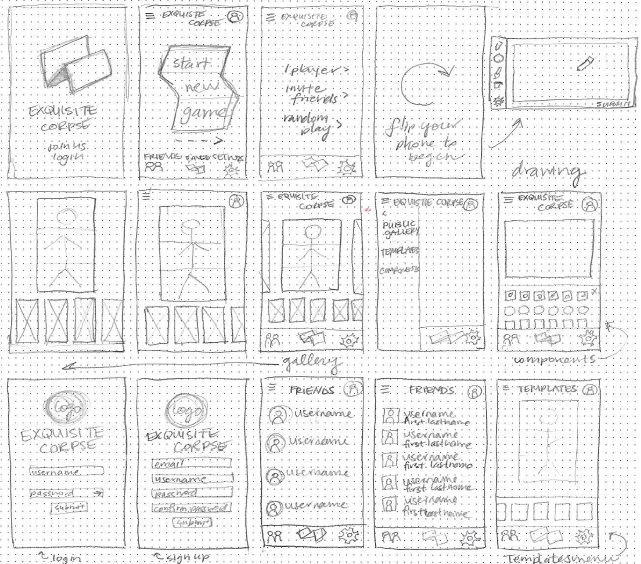 EXQUISITE
CORPSE
JOIN US
login
EXQUISITE
CORPSE
start
new
game
FRIENDS
EXQUISITE
CORPSE
1 player >
invite
friends >
random
play >
flip your
phone to
begin
drawing
EXQUISITE
CORPSE
EXQUISITE CORPSE
<
PUBLIC
GALLERY
TEMPLATES
EXQUISITE
CORPSE
x
gallery
components
logo
EXQUISITE
CORPSE
username
password
submit
login
logo
EXQUISITE
CORPSE
email
username
password
confirm password
submit
sign up
FRIENDS
username
username
username
username
FRIENDS
username
first lastname
username
first lastname
username
first lastname
username
first lastname
username
first lastname
TEMPLATES
Templates menu